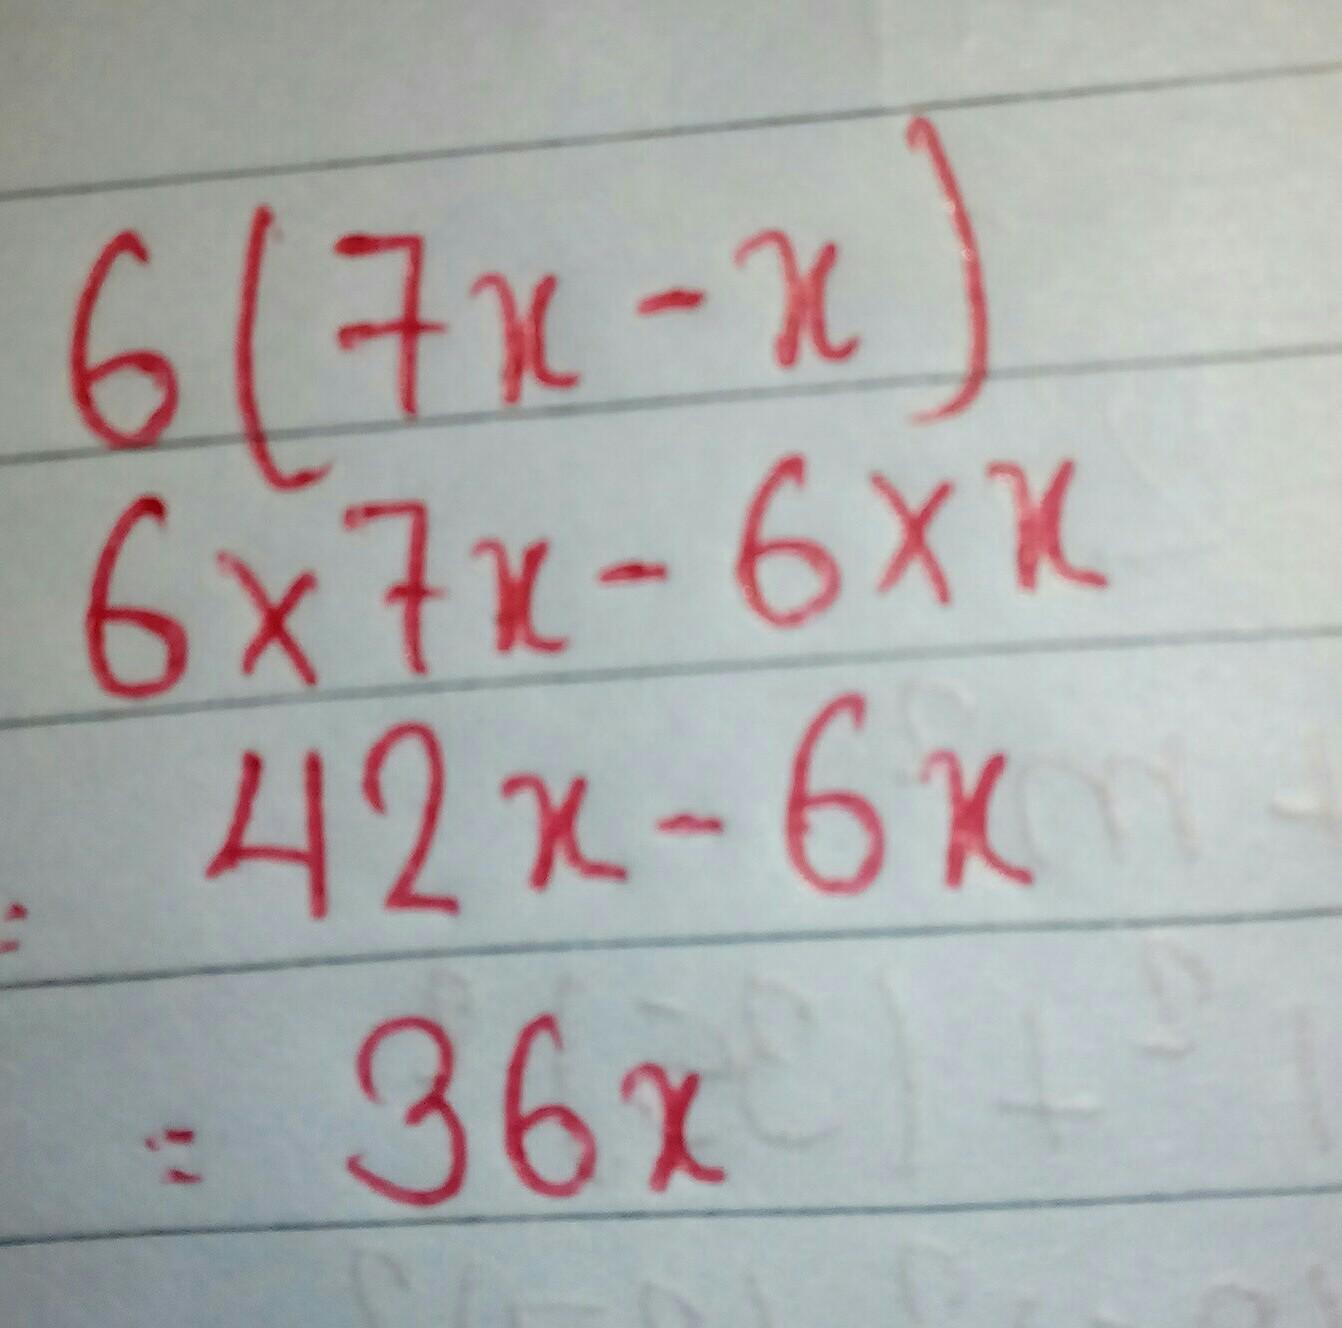 6(7x-x)
6×7x-6×x
= 42x-6x
= 36x